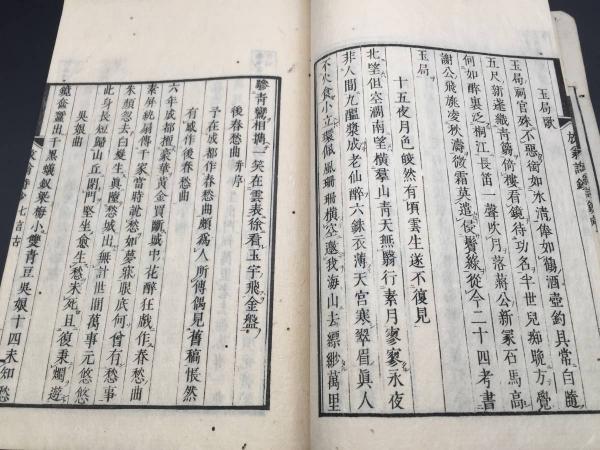 玉局歌
玉局祠官殊不惡銜如水清俸如鶴酒壺釣具常自隨
五尺新蓬織青篛倚樓看鏡待功名半世兒癡晚方覺
何如醉裏泛桐江長笛一聲吹月落蔣公新冢石馬高
謝公飛旐凌秋濤微霜莫遣侵鬢綠從今二十四考書
玉局
十五夜月色皎然有頃雲生遂不復見
北望但空濶南望橫羣山青天無翳行素月寥寥永夜
非人間九醞漿成老仙醉六銖衣薄天宮寒翠眉眞人
不火食小立環佩風珊珊橫空邀我海山去縹緲萬里
驂青鸞相攜一笑在雲表徐看玉宇飛金盤
後春愁曲幷序
予在成都作春愁曲頗爲人所傳偶見舊稿悵然
有感作後春愁曲
六年成都擅豪華黃金買斷城中花醉狂戲作春愁曲
素屏紈扇傳千家當時說愁如夢寐眼底何曾有愁事
朱顏忽去白髮生眞墮愁城出無計世間萬事元悠悠
此身長短歸山丘閉門堅坐愈生愁未死且復秉燭遊
吳娘曲
出千黑蟻釵梁梅小雙青豆吳娘十四未知愁
七言古